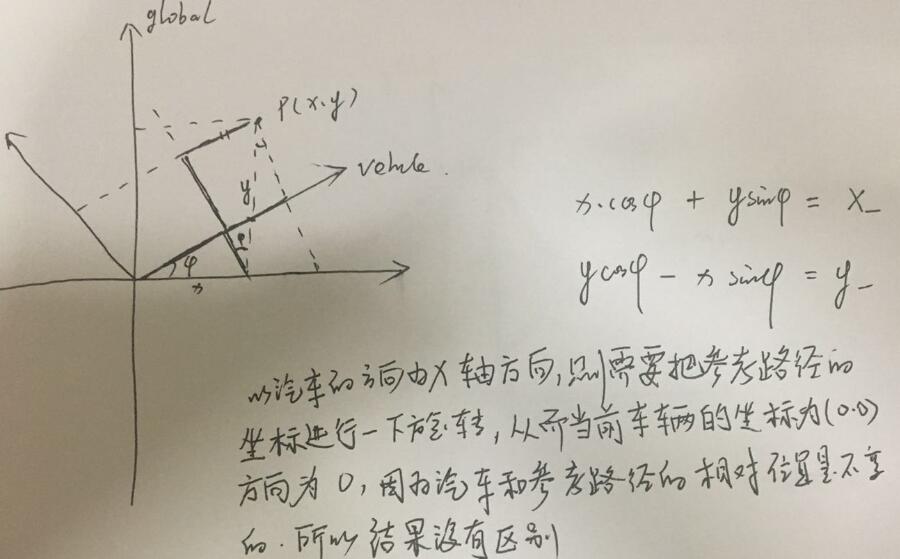 global
P(x.y)
vehcle.
y
φ
φ
x
x.cosφ + ysinφ = X_
ycosφ - x sinφ = y_
以汽车的方向为X轴方向,则需要把参考路径的
坐标进行一下旋转,从而当前车辆的坐标为(0.0)
方向为0,因为汽车和参考路径的相对位置是不变
的.所以结果没有区别